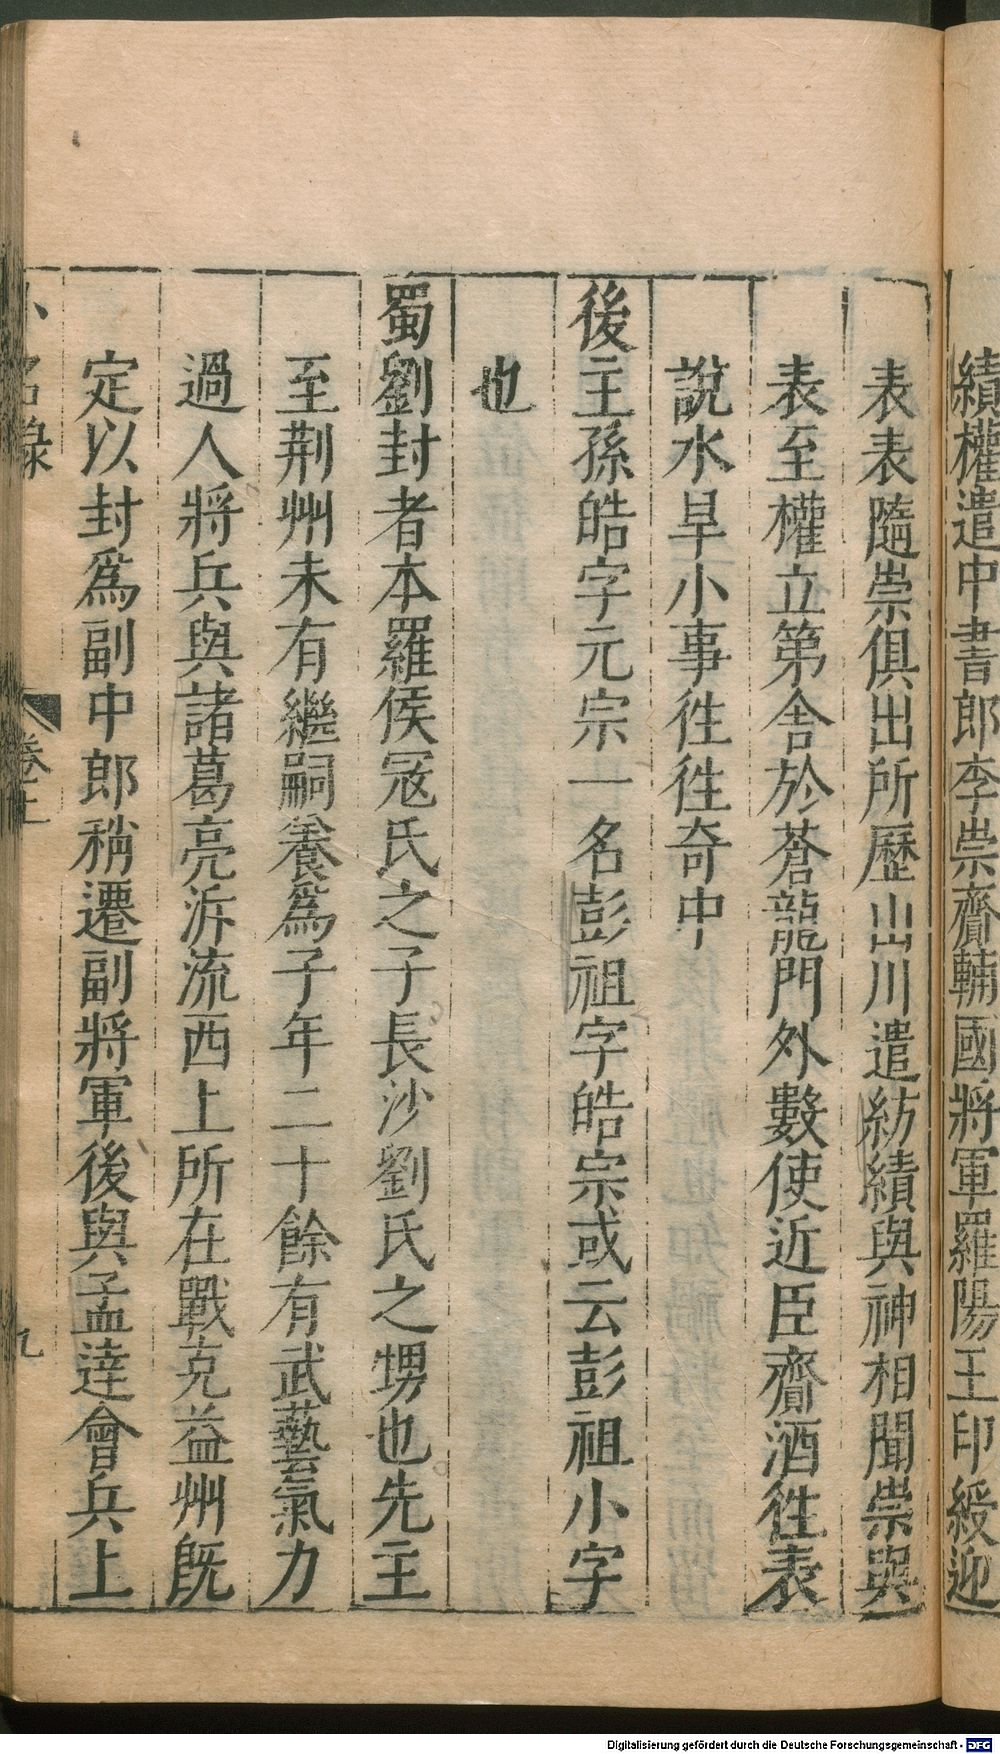 續權遣中書郎李崇齎輔國將軍羅陽王印綬迎
表表隨崇俱出所歷山川遣紡績與神相聞崇與
表至權立第舍於蒼龍門外數使近臣齎酒徃表
說水旱小事徃徃奇中
後主孫皓字元宗一名彭祖字皓宗或云彭祖小字
也
蜀劉封者本羅侯冦氏之子長沙劉氏之甥也先主
至荆州未有繼嗣養爲子年二十餘有武藝氣力
過人將兵與諸葛亮泝流西上所在戰克益州旣
定以封爲副中郎稍遷副將軍後與孟達會兵上
小名錄 卷上 九
Digitalisierung gefördert durch die Deutsche Forschungsgemeinschaft - DFG